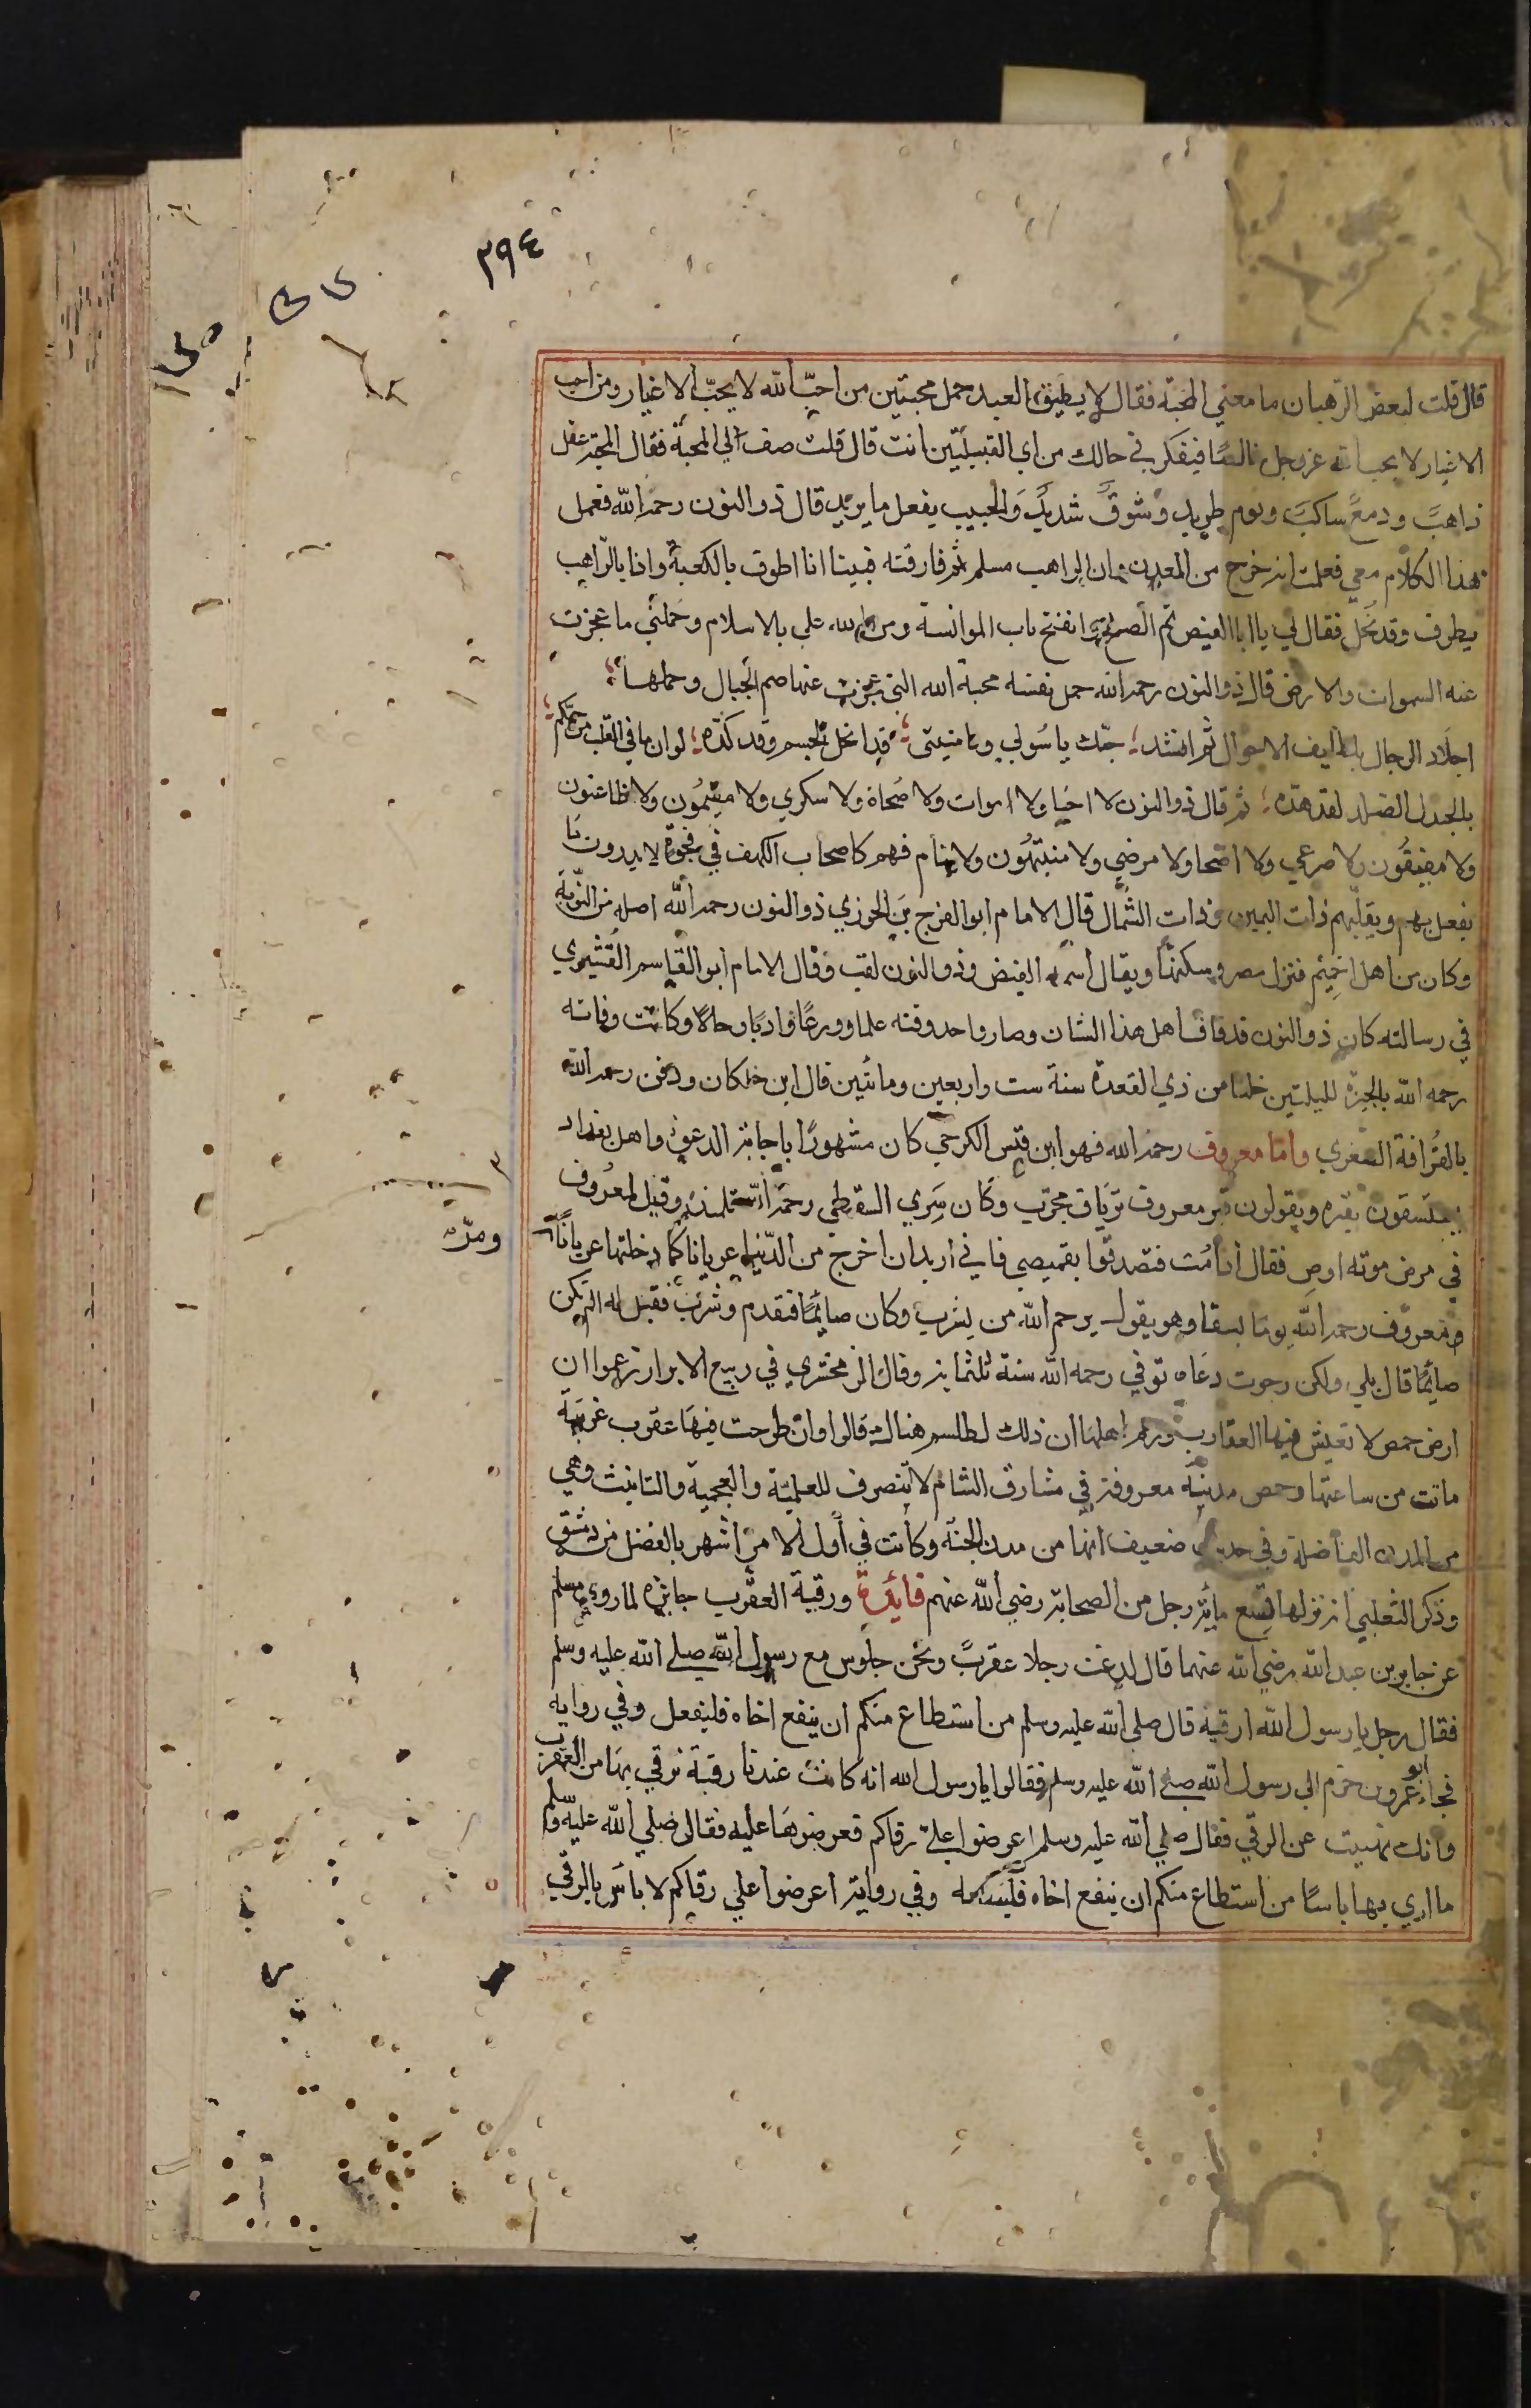 ٢٩٤
قال قلت لبعض الرهبان ما معني المحبة فقال لا يطيق العبد حمل محبتين من احبّ الله لا يحبّ الاغيار ومن احب
الاغيار لا يحب الله عزوجل خالصًا فيفكر في حالك من اي القبيلتين انت قال قلت صف لي المحبة فقال المحبة عقل
ذاهبٌ ودمعٌ ساكبٌ ونوم طريد وشوقٌ شديدٌ والحبيب يفعل ما يريد قال ذو النون رحمه الله فعمل
هذا الكلام معي فعلمت انه خرج من المعدن وان الراهب مسلم ثم فارقته فبينا انا اطوف بالكعبة واذا بالراهب
يطوف وقد نحل فقال لي يا ابا الفيض تم الصلح وانفتح باب الموانسة ومن الله علي بالاسلام وحملني ما عجزت
عنه السموات والارض قال ذو النون رحمه الله حمل نفسه محبة الله التي عجزت عنها صم الجبال وحملها
اجلاد الرجال بلطايف الاحوال ثم انشد حبّك يا سُولي ويا منيتي قد انحل الجسم وقد كدّه لوان ما في القلب من حبّكم
بالجبل الصلد لقد هدّه ثم قال ذو النون لا احيا ولا اموات ولا صُحاة ولا سكري ولا مقيمُون ولا ظاعنون
ولا مفيقُون ولا صرعي ولا اصحا ولا مرضي ولا منتبهُون ولا نيام فهم كاصحاب الكهف في فجوة لا يدرون ما
يفعل بهم ويقلبهم ذات اليمين وذات الشمال قال الامام ابو الفرج بن الجوزي ذو النون رحمه الله اصله من النوبة
وكان من اهل اخميم فنزل مصر وسكنها ويقال اسمه الفيض وذو النون لقب وقال الامام ابو القاسم القشيري
في رسالته كان ذو النون قد فاق اهل هذا الشان وصار واحد وقته علما وورعًا وادبًا وحالًا وكانت وفاته
رحمه الله بالجيزة لليلتين خلتا من ذي القعدة سنة ست واربعين ومائتين قال ابن خلكان ودفن رحمه الله
بالقرافة الصغري وامّا معروف رحمه الله فهو ابن قيس الكرخي كان مشهورًا باجابة الدعوة واهل بغداد
يستسقون بقبره ويقولون قبر معروف ترياق مجرّب وكان سَري السقطي رحمه الله تلميذه وقيل لمعروف
في مرض موته اوص فقال اذا مُت فتصدقوا بقميصي فاني اريد ان اخرج من الدنيا عريانا كما دخلتها عريانًا
ومرّ
معروف رحمه الله يوما بسقا وهو يقول يرحم الله من يشرب وكان صايمًا فتقدم وشرب فقيل له الم تكن
صايمًا قال بلي ولكن رجوت دعاه توفي رحمه الله سنة وقال الزمخشري في ربيع الابرار زعموا ان
ارض حمص لا تعيش فيها العقارب وزعم اهلها ان ذلك لطلسم هناك قالوا وان طرحت فيها عقرب غريبة
ماتت من ساعتها وحمص مدينة معروفة في مشارق الشام لا تنصرف للعلمية والعجمية والتانيث وهي
من المدن الفاضلة وفي حديث ضعيف انها من مدن الجنة وكانت في اول الامر اشهر بالفضل من دمشق
وذكر الثعلبي انه نزلها تسع ماية رجل من الصحابة رضي الله عنهم فائدة ورقية العقرب جايزة لما روي مسلم
عن جابر بن عبد الله رضي الله عنهما قال لدغت رجلا عقربٌ ونحن جلوس مع رسول الله صلي الله عليه وسلم
فقال رجل يا رسول الله ارقيه قال صلي الله عليه وسلم من استطاع منكم ان ينفع اخاه فليفعل وفي رواية
فجاء ابو عمرو بن حزم الي رسول الله صلي الله عليه وسلم فقالوا يا رسول الله انه كانت عندنا رقية نرقي بها من العقرب
وانك نهيت عن الرقي فقال صلي الله عليه وسلم اعرضوا عليّ رقاكم فعرضوها عليه فقال صلي الله عليه وسلم
ما اري بها باسًا من استطاع منكم ان ينفع اخاه وفي رواية اعرضوا علي رقاكم لا باس بالرقي